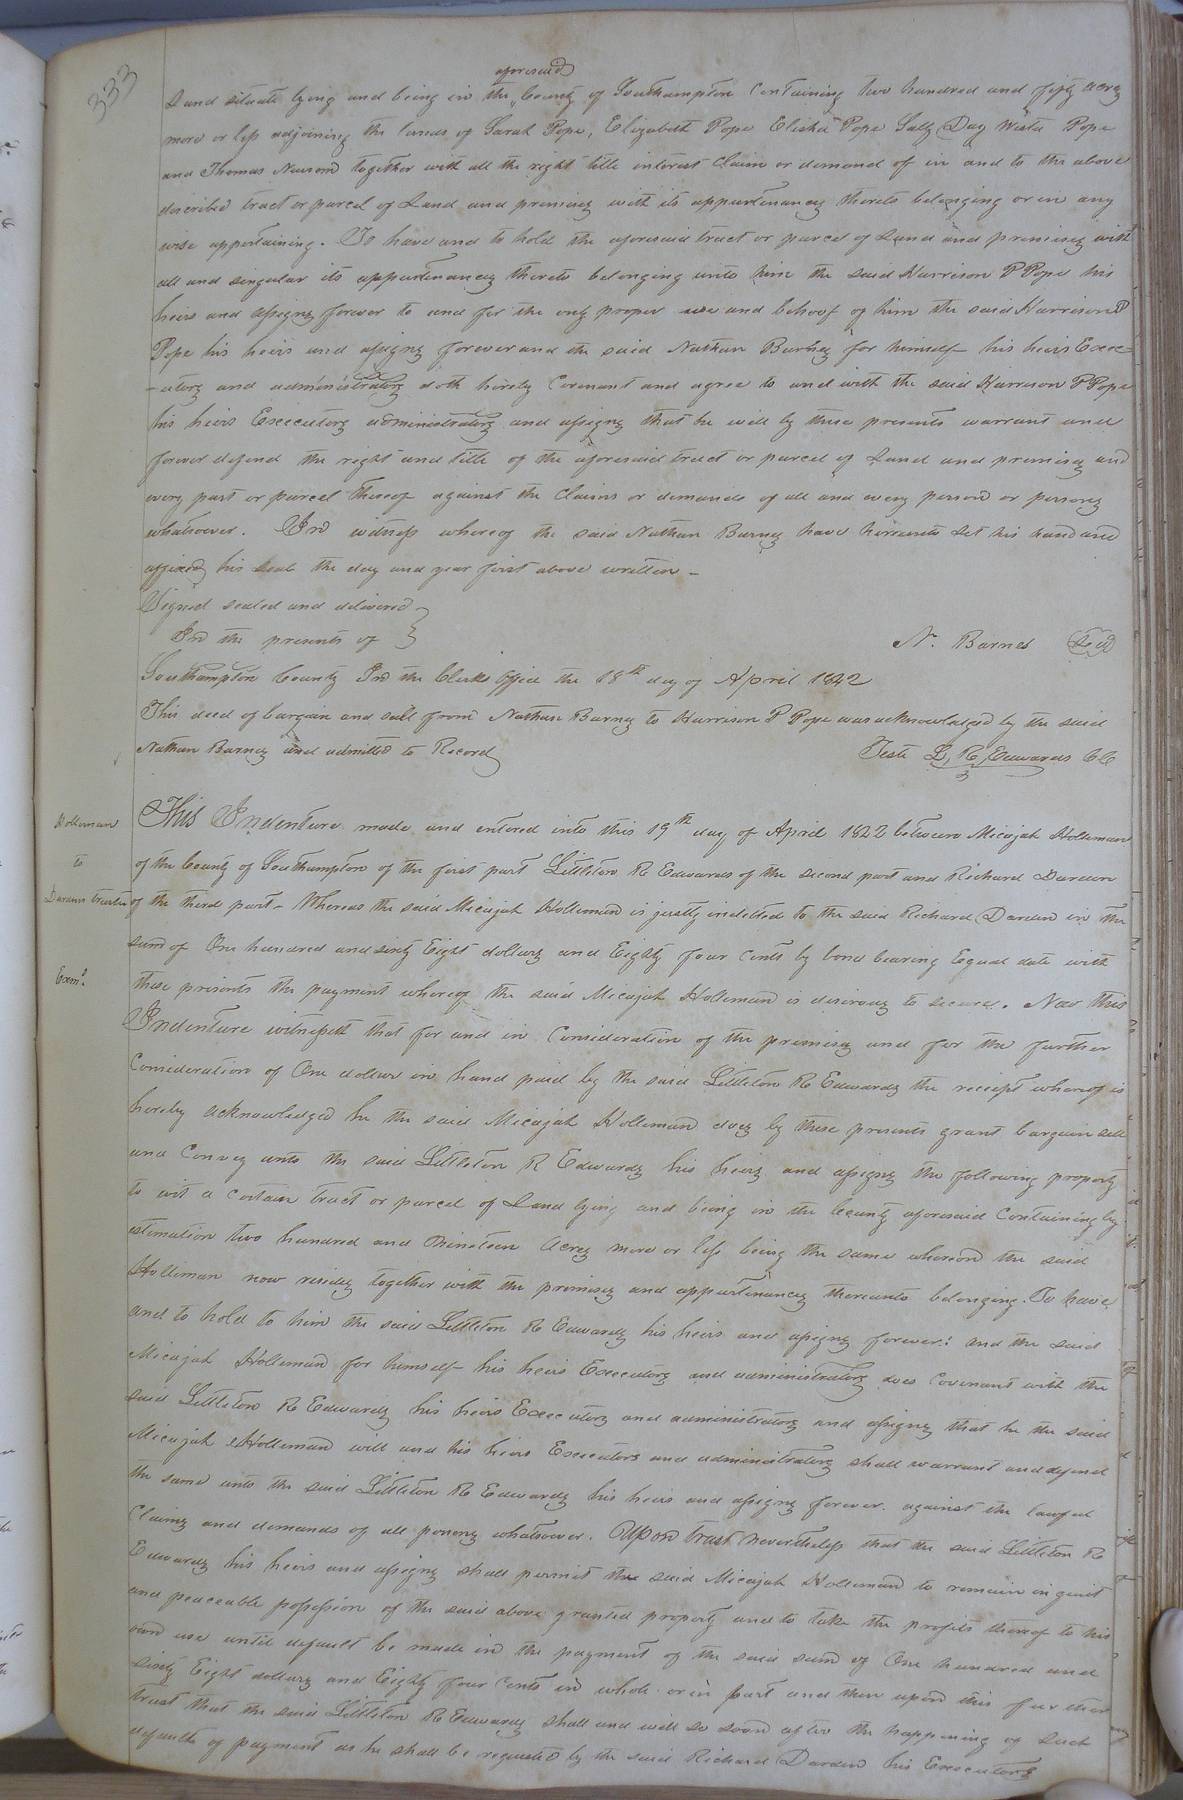 333
aforesaid
Land situate lying and being in the County of Southampton Containing two hundred and fifty acres
more or less adjoining the lands of Sarah Pope, Elizabeth Pope Elisha Pope Sally Day Pope
and Thomas Newsom together with all the right title interest Claim or demand of in and to the above
described tract or parcel of Land and premises with its appurtenances thereto belonging or in any
wise appertaining. To have and to hold the aforesaid tract or parcel of Land and premises with
all and singular its appurtenances thereto belonging unto him the said Harrison P Pope his
heirs and assigns forever to and for the only proper use and behoof of him the said Harrison P
Pope his heirs and assigns forever and the said Nathan Barnes for himself his heirs Exec-
-utors and administrators doth hereby Covenant and agree to and with the said Harrison P Pope
his heirs Executors administrators and assigns that he will by these presents warrant and
forever defend the right and title of the aforesaid tract or parcel of Land and premises and
every part or parcel thereof against the Claims or demands of all and every person or persons
whatsoever. In witness whereof the said Nathan Barnes have hereunto set his hand and
affixed his Seal the day and year first above written -
Signed sealed and delivered }
In the presents of }
N. Barnes Seal
Southampton County In the Clerks Office the 18th day of April 1842
This deed of bargain and sale from Nathan Barnes to Harrison P Pope was acknowledged by the said
Nathan Barnes and admitted to Record
Teste L. R. Edwards CC
Holleman
to
Dardens trustee
Exmd
This Indenture made and entered into this 19th day of April 1842 between Micajah Holleman
of the County of Southampton of the first part Littleton R Edwards of the second part and Richard Darden
of the third part - Whereas the said Micajah Holleman is justly indebted to the said Richard Darden in the
sum of One hundred and sixty Eight dollars and Eighty four Cents by bond bearing Equal date with
these presents the payment whereof the said Micajah Holleman is desirous to secure. Now this
Indenture witnesseth that for and in Consideration of the premises and for the further
Consideration of One dollar in hand paid by the said Littleton R Edwards the receipt whereof is
hereby acknowledged he the said Micajah Holleman does by these presents grant bargain sell
and Convey unto the said Littleton R Edwards his heirs and assigns the following property
to wit a certain tract or parcel of Land lying and being in the County aforesaid Containing by
estimation two hundred and Nineteen Acres more or less being the same whereon the said
Holleman now resides together with the premises and appurtenances thereunto belonging. To have
and to hold to him the said Littleton R Edwards his heirs and assigns forever: and the said
Micajah Holleman for himself his heirs Executors and administrators does Covenant with the
said Littleton R Edwards his heirs Executors and administrators and assigns that he the said
Micajah Holleman will and his heirs Executors and administrators shall warrant and defend
the same unto the said Littleton R Edwards his heirs and assigns forever against the lawful
Claims and demands of all persons whatsoever. Upon trust nevertheless that the said Littleton R
Edwards his heirs and assigns shall permit the said Micajah Holleman to remain in quiet
and peaceable possession of the said above granted property and to take the profits thereof to his
own use until default be made in the payment of the said sum of One hundred and
sixty Eight dollars and Eighty four Cents in whole or in part and then upon this further
trust that the said Littleton R Edwards shall and will so soon after the happening of such
default of payment as he shall be requested by the said Richard Darden his Executors